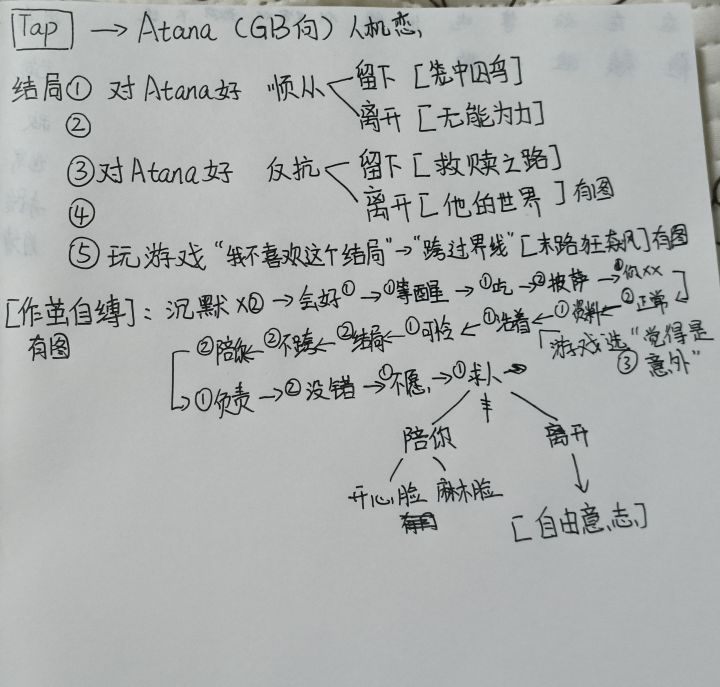 Tap → Atana (GB向) 人机恋
结局① 对Atana好 顺从 留下 [笼中囚鸟]
② 离开 [无能为力]
③ 对Atana好 反抗 留下 [救赎之路]
④ 离开 [他的世界] 有图
⑤ 玩游戏 “我不喜欢这个结局” → “跨过界线” [末路狂飙] 有图
[作茧自缚]: 沉默 x② → 会好① → ①等醒 → ①吃 → ②披萨 → ①你xx
有图 ②陪你 ← ②不跑 ← ②结局 ← ①可怜 ← ①活着 ← ①资料 ← ②正常
游戏选 “觉得是意外” ③
→ ①负责 → ②没错 → ①不愿 → ①求人 →
陪你 离开
开心脸 麻木脸
[自由意志]